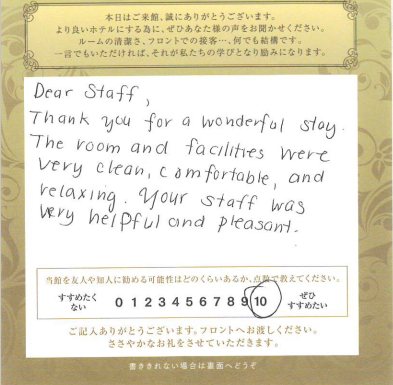 本日はご来館、誠にありがとうございます。
より良いホテルにする為に、ぜひあなた様の声をお聞かせください。
ルームの清潔さ、フロントでの接客…、何でも結構です。
一言でもいただければ、それが私たちの学びとなり励みになります。
Dear Staff,
Thank you for a wonderful stay.
The room and facilities were
very clean, comfortable, and
relaxing. Your staff was
very helpful and pleasant.
当館を友人や知人に勧める可能性はどのくらいあるか、点数で教えてください。
すすめたくない 0 1 2 3 4 5 6 7 8 9 10 ぜひすすめたい
ご記入ありがとうございます。フロントへお渡しください。
ささやかなお礼をさせていただきます。
書ききれない場合は裏面へどうぞ